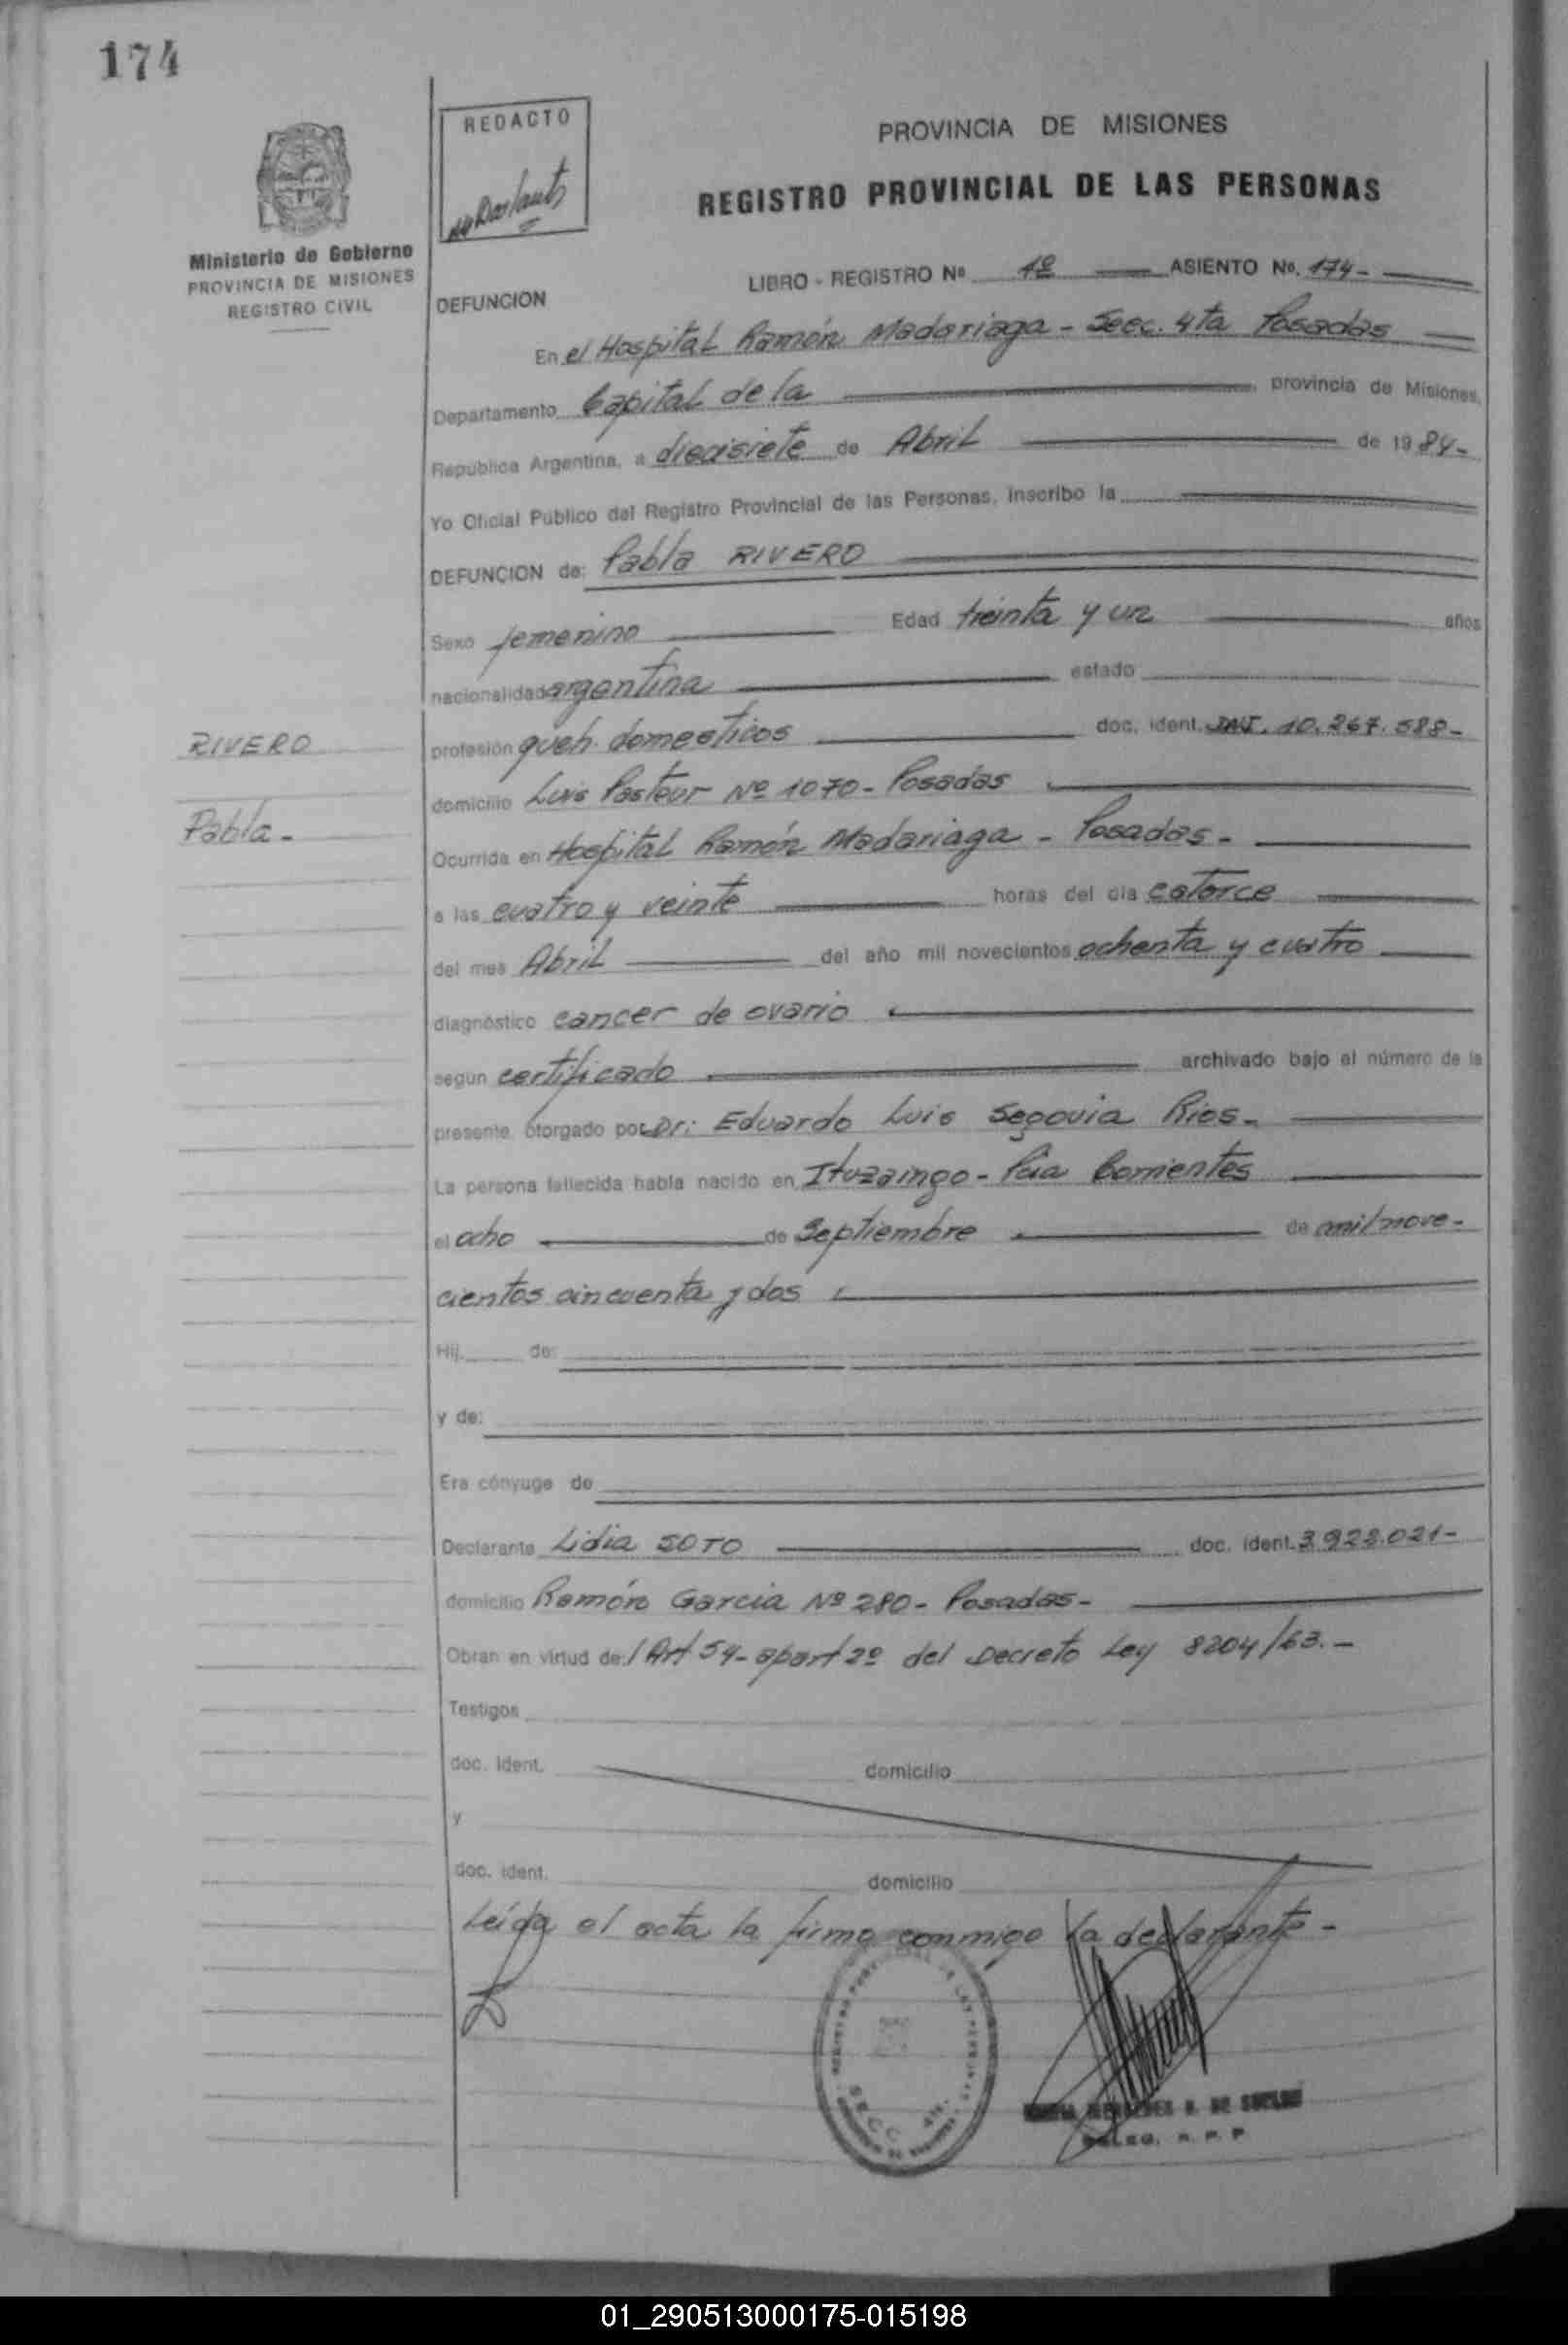 174
REDACTO
PROVINCIA DE MISIONES
REGISTRO PROVINCIAL DE LAS PERSONAS
Ministerio de Gobierno
PROVINCIA DE MISIONES
REGISTRO CIVIL
LIBRO - REGISTRO Nº 1º ASIENTO No. 174-
DEFUNCION
En el Hospital Ramón Madariaga - Secc. 4ta Posadas
Departamento Capital de la provincia de Misiones,
República Argentina, a diecisiete de Abril de 1984-
Yo Oficial Público del Registro Provincial de las Personas, inscribo la
DEFUNCION de: Pabla RIVERO
Sexo femenino Edad treinta y un años
nacionalidad argentina estado
RIVERO
profesión queh. domesticos doc. ident. DNI. 10.267.588-
domicilio Luis Pasteur Nº 1070- Posadas
Pabla-
Ocurrida en Hospital Ramón Madariaga - Posadas-
a las cuatro y veinte horas del día catorce
del mes Abril del año mil novecientos ochenta y cuatro
diagnóstico cancer de ovario
según certificado archivado bajo el número de la
presente, otorgado por Dr: Eduardo Luis Segovia Rios-
La persona fallecida había nacido en Ituzaingo- Pcia Corrientes
el ocho de Septiembre de mil nove-
cientos cincuenta y dos
Hij de:
y de:
Era cónyuge de
Declarante Lidia SOTO doc. ident. 3.923.021-
domicilio Ramón Garcia Nº 280- Posadas-
Obran en virtud de: l Art 54- apart 2º del Decreto Ley 8204/63.-
Testigos
doc. ident. domicilio
y
doc. ident. domicilio
Leída el acta la firma conmigo la declarante-
SECC. 4ta.
DE
R. P. P.
01_290513000175-015198